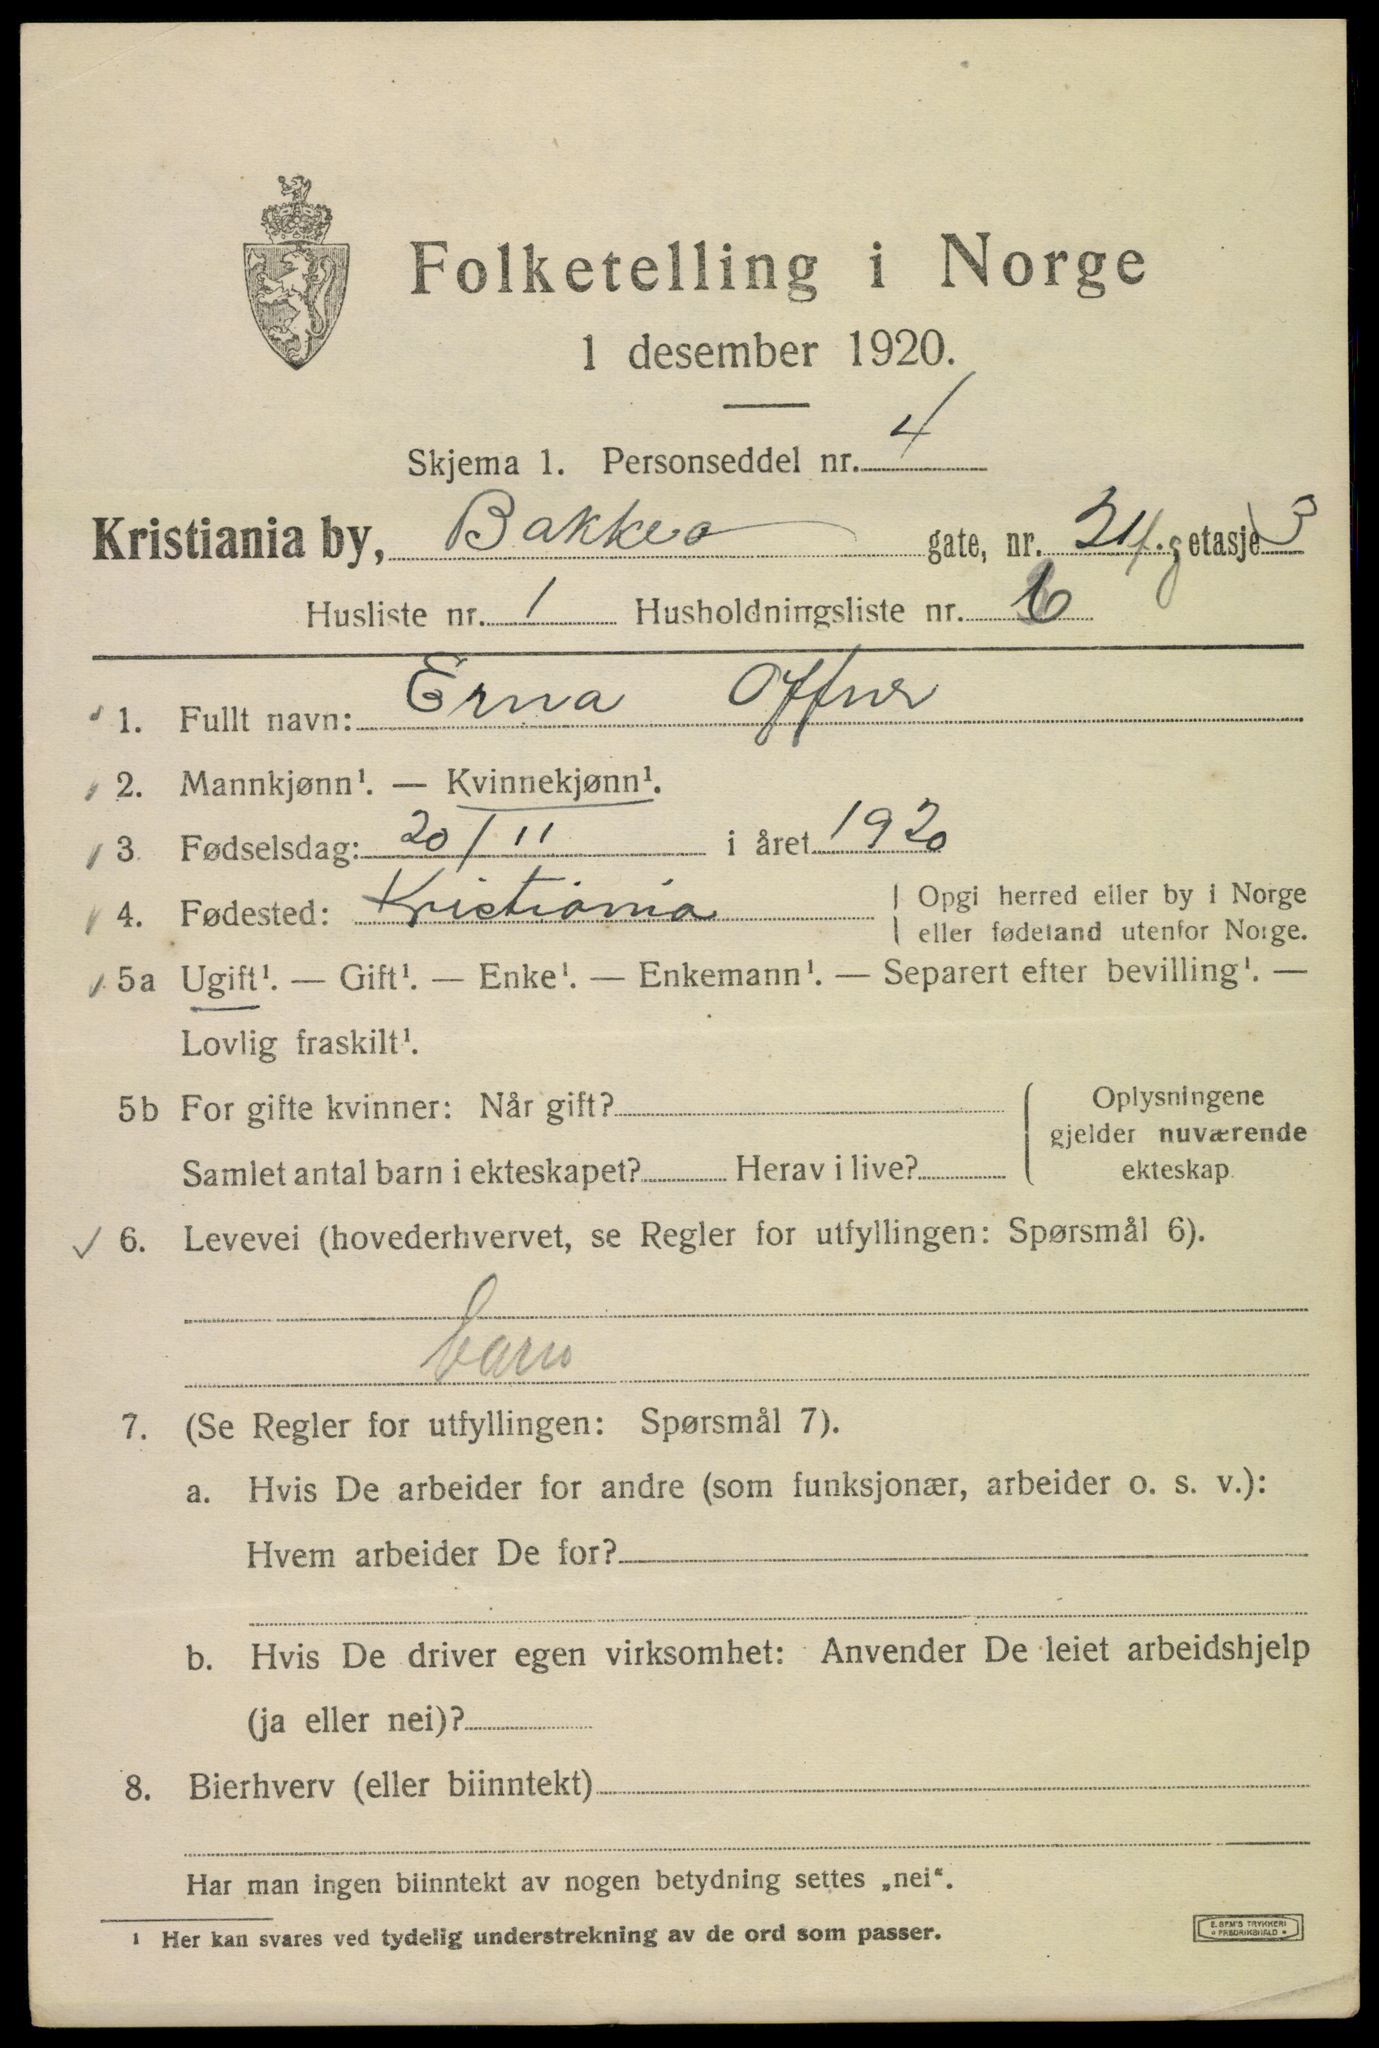 Folketelling i Norge
1 desember 1920.
Skjema 1. Personseddel nr. 4
Kristiania by, Bakke gate, nr. etasje 3
Husliste nr. 1 Husholdningsliste nr.
1. Fullt navn: Erna Offner
2. Mannkjønn¹. — Kvinnekjønn¹.
3. Fødselsdag: 20/11 i året 1920
4. Fødested: Kristiania Opgi herred eller by i Norge
eller fødeland utenfor Norge.
5a Ugift¹. — Gift¹. — Enke¹. — Enkemann¹. — Separert efter bevilling¹. —
Lovlig fraskilt¹.
5b For gifte kvinner: Når gift? Oplysningene
gjelder nuværende
Samlet antal barn i ekteskapet? Herav i live? ekteskap
6. Levevei (hovederhvervet, se Regler for utfyllingen: Spørsmål 6).
barn
7. (Se Regler for utfyllingen: Spørsmål 7).
a. Hvis De arbeider for andre (som funksjonær, arbeider o. s. v.):
Hvem arbeider De for?
b. Hvis De driver egen virksomhet: Anvender De leiet arbeidshjelp
(ja eller nei)?
8. Bierhverv (eller biinntekt)
Har man ingen biinntekt av nogen betydning settes „nei“.
¹ Her kan svares ved tydelig understrekning av de ord som passer.
E. SEM'S TRYKKERI
FREDRIKSHALD